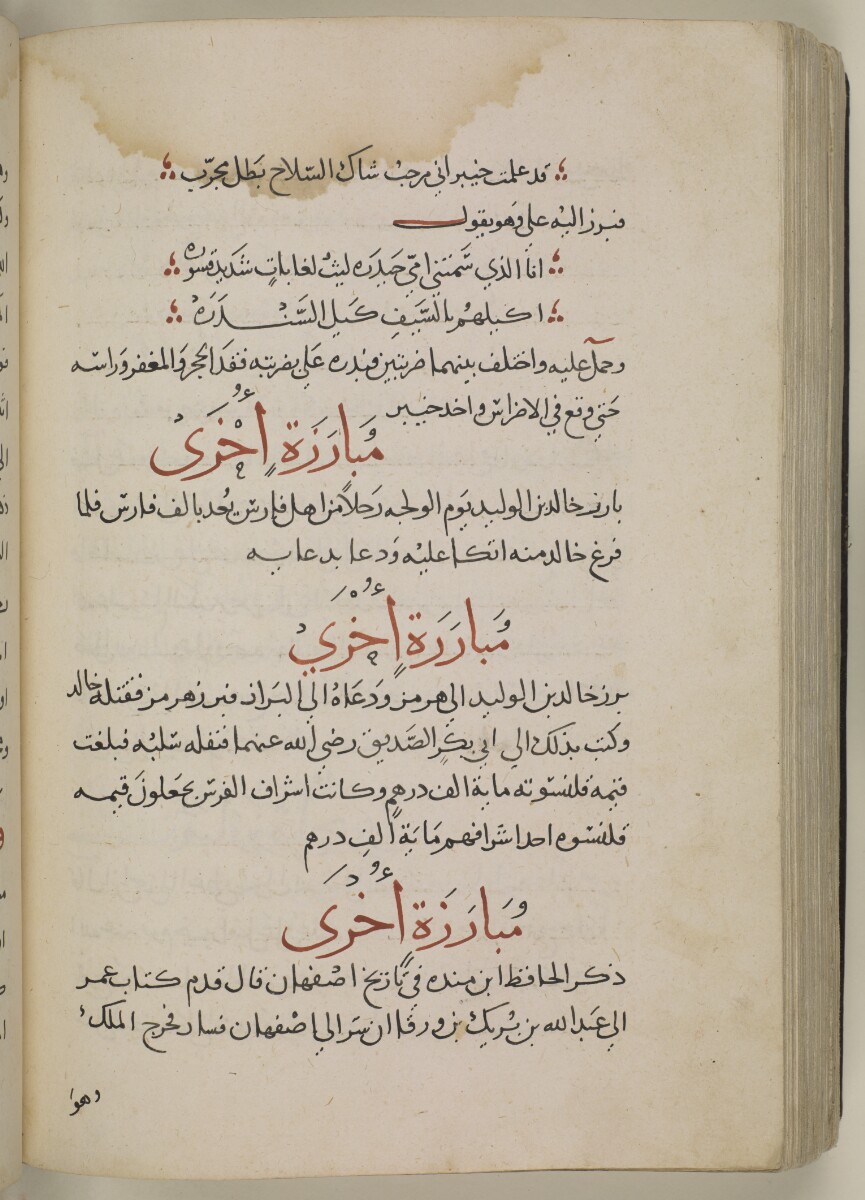 قد علمت خيبر اني مرحب شاك السلاح بطل مجرّب
فبرز اليه علي وهو يقول
انا الذي سَمتني امّي حَيدَره ليث لغاباتٍ شديد قسوره
اكيلهُم بالسَّيفِ كيل السَّنْدَرَهْ
وحمل عليه واختلف بينهما ضربتين فبدره علي بضربته فقد الحجر والمغفر وراسه
حَتي وقع في الاضراس واخد خيبر
مُبارَزَة اُخْرَى
بارز خالد بن الوليد يَوم الولجه رَجلاً من اهل فارس يُعد بالف فارس فلما
فرغ خالد منه اتكا عليه وَدعا بدعايه
مُبَارَزَة اُخْرَي
برز خالد بن الوليد الي هرمز وَدعَاهُ الي البَراز فبرز هرمز فقتله خالد
وكتب بذلك الي ابي بكرٍ الصَّديق رضي الله عنهما فنفله سَلبُه فبلغت
قيمه قلنسوته ماية الف درهم وكانت اشراف الفرس يجعلونَ قيمه
قلنسوه احد اشرافهم مَايَة ألف درهم
مُبَارَزَة اُخرَى
ذكر الحافظ ابن منده في تاريخ اصْفهان قال قدم كتاب عمر
الي عَبد الله بن بُريك بن ورقا ان سَر الي اصْفهان فسار فخرج الملك
وهوا